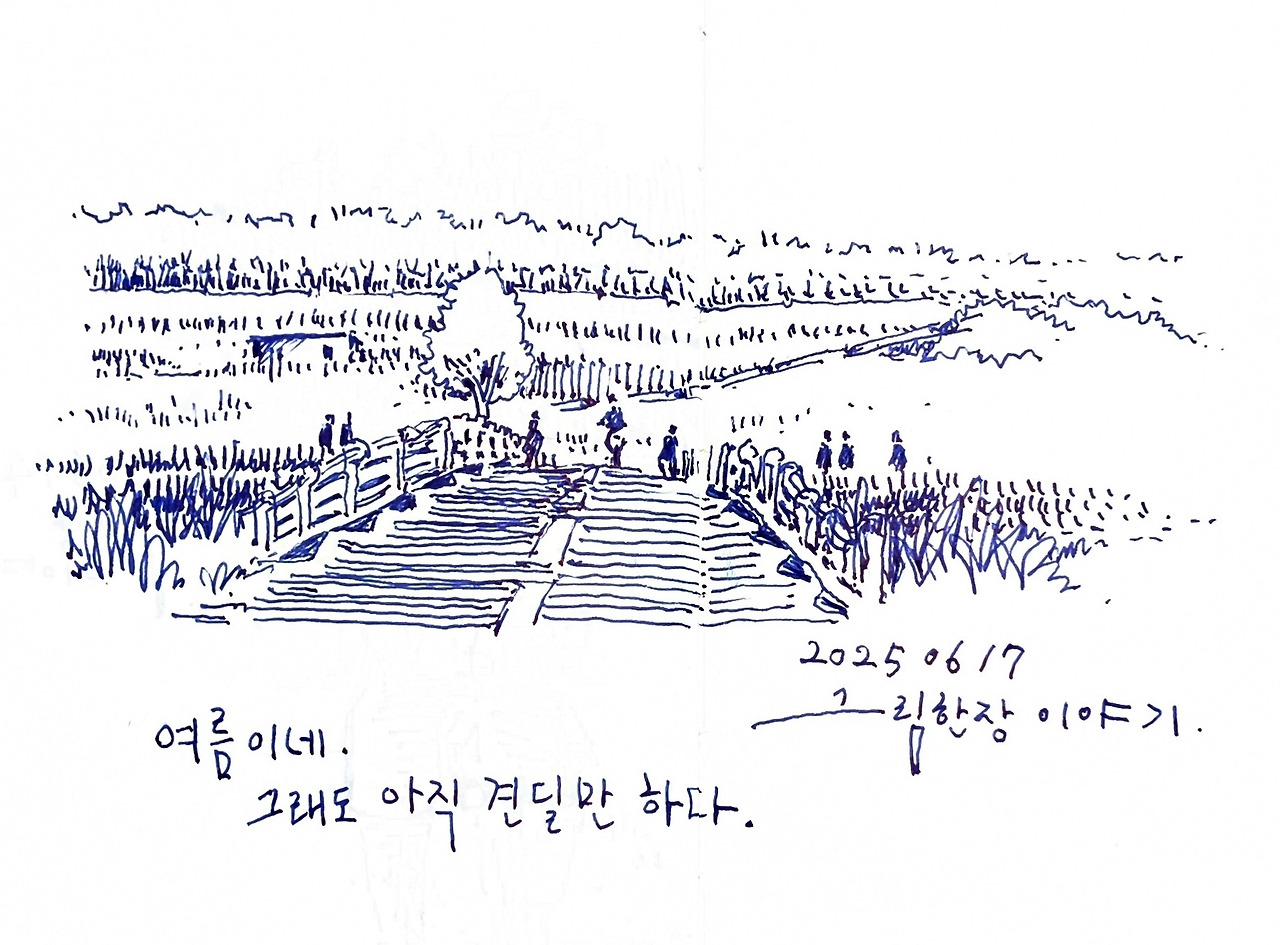 2025 06 17
그림한장 이야기.
여름이네.
그래도 아직 견딜만 하다.